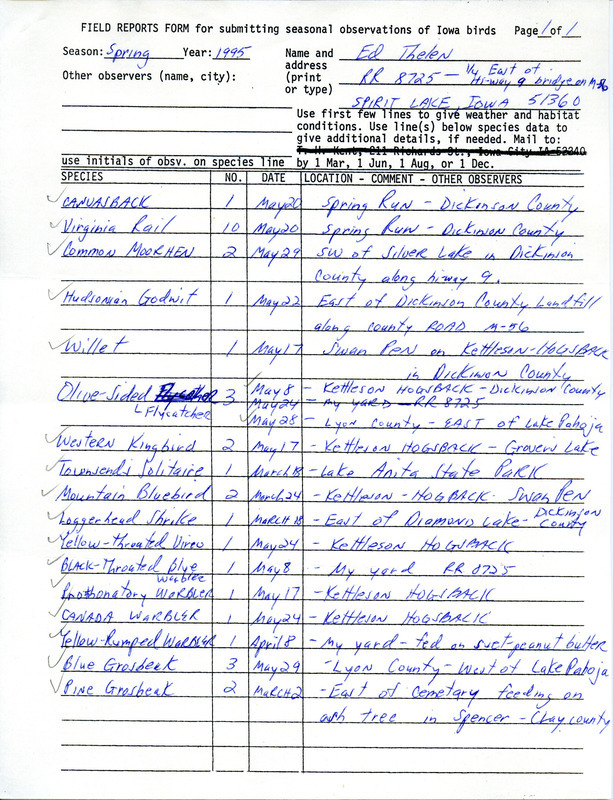 FIELD REPORTS FORM for submitting seasonal observations of Iowa birds Page 1 of 1
Season: Spring Year: 1995 Name and address (print or type) Ed Thelen
Other observers (name, city): RR 8725 — 1/4 East of Hi-way 9 bridge on M-56
SPIRIT LAKE, IOWA 51360
Use first few lines to give weather and habitat
conditions. Use line(s) below species data to
give additional details, if needed. Mail to:
T. H. Kent, 211 Richards St., Iowa City IA 52240
use initials of obsv. on species line by 1 Mar, 1 Jun, 1 Aug, or 1 Dec.
SPECIES NO. DATE LOCATION - COMMENT - OTHER OBSERVERS
CANVASBACK 1 May 20 Spring Run - Dickinson County
Virginia Rail 10 May 20 Spring Run - Dickinson County
Common MOORHEN 2 May 29 SW of Silver Lake in Dickinson
County along hi-way 9.
Hudsonian Godwit 1 May 22 East of Dickinson County Landfill
along county ROAD M-56
Willet 1 May 17 Swan Pen on Kettleson-HOGSBACK
in Dickinson County
Olive-Sided Flycather 3 May 8 - Kettleson HOGSBACK - Dickinson County
Flycatcher May 24 - my YARD - RR 8725
May 28 - Lyon County - EAST of Lake Pahoja
Western Kingbird 2 May 17 - Kettleson HOGSBACK - Grovers Lake
Townsend's Solitaire 1 March 18 - Lake Anita State PARK
Mountain Bluebird 2 March 24 - Kettleson - HOGBACK - Swan Pen
Loggerhead Shrike 1 MARCH 18 - East of Diamond Lake - Dickinson County
Yellow-Throated Vireo 1 May 24 - Kettleson HOGSBACK
BLACK-Throated Blue Warbler 1 May 8 - My yard RR 8725
Prothonotary WARBLER 1 May 17 - Kettleson HOGSBACK
CANADA WARBLER 1 May 24 - Kettleson HOGSBACK
Yellow-Rumped WARBLER 1 April 8 - My yard - fed on suet-peanut butter
Blue Grosbeak 3 May 29 - Lyon County - West of Lake Pahoja
Pine Grosbeak 2 MARCH 2 - East of Cemetary feeding on
ash tree in Spencer - Clay county